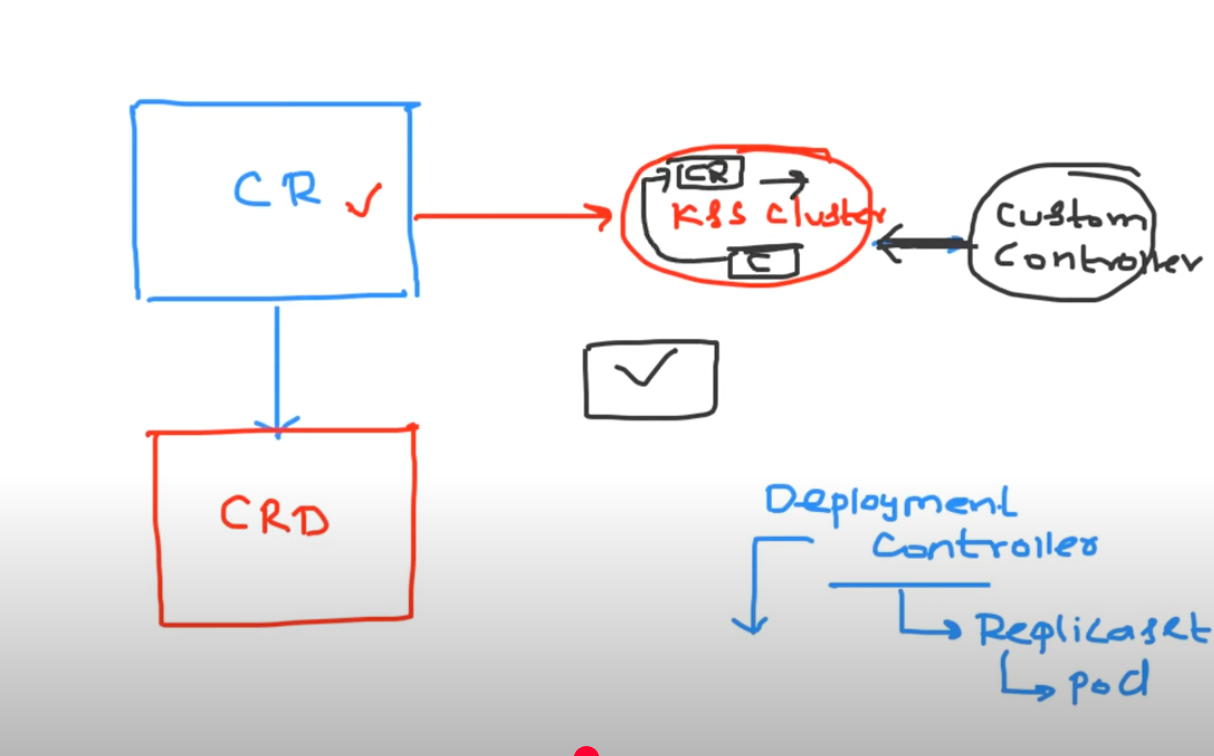 CR
CR
K8S Cluster
C
Custom
Controller
CRD
Deployment
Controller
Replicaset
pod